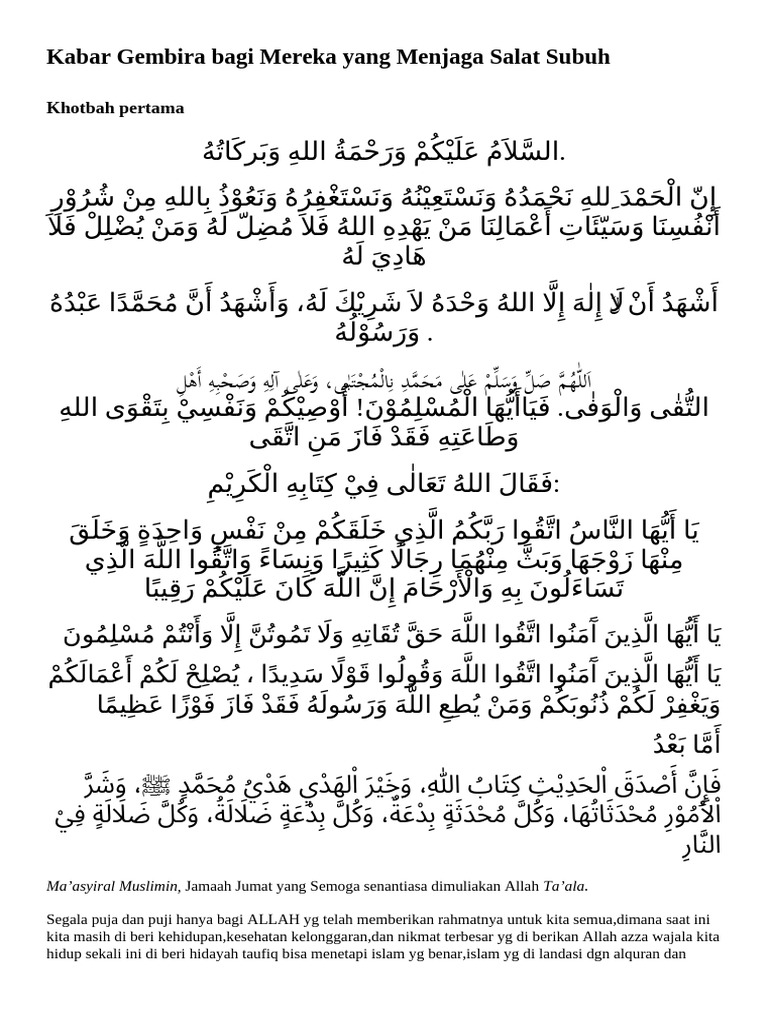 Kabar Gembira bagi Mereka yang Menjaga Salat Subuh
Khotbah pertama
السَّلاَمُ عَلَيْكُمْ وَرَحْمَةُ اللهِ وَبَرَكَاتُهُ.
إِنّ الْحَمْدَ ِللهِ نَحْمَدُهُ وَنَسْتَعِيْنُهُ وَنَسْتَغْفِرُهُ وَنَعُوْذُ بِاللهِ مِنْ شُرُوْرِ
أَنْفُسِنَا وَسَيّئَاتِ أَعْمَالِنَا مَنْ يَهْدِهِ اللهُ فَلاَ مُضِلّ لَهُ وَمَنْ يُضْلِلْ فَلاَ
هَادِيَ لَهُ
أَشْهَدُ أَنْ لَا إِلٰهَ إِلَّا اللهُ وَحْدَهُ لاَ شَرِيْكَ لَهُ، وَأَشْهَدُ أَنَّ مُحَمَّدًا عَبْدُهُ
وَرَسُوْلُهُ .
اَللّٰهُمَّ صَلِّ وَسَلِّمْ عَلٰى مَحَمَّدِ نِالْمُجْتَبٰى، وَعَلٰى آلِهِ وَصَحْبِهِ أَهْلِ
التُّقٰى وَالْوَفٰى. فَيَاأَيُّهَا الْمُسْلِمُوْنَ! أُوْصِيْكُمْ وَنَفْسِيْ بِتَقْوَى اللهِ
وَطَاعَتِهِ فَقَدْ فَازَ مَنِ اتَّقَى
فَقَالَ اللهُ تَعَالٰى فِيْ كِتَابِهِ الْكَرِيْمِ:
يَا أَيُّهَا النَّاسُ اتَّقُوا رَبَّكُمُ الَّذِي خَلَقَكُمْ مِنْ نَفْسٍ وَاحِدَةٍ وَخَلَقَ
مِنْهَا زَوْجَهَا وَبَثَّ مِنْهُمَا رِجَالًا كَثِيرًا وَنِسَاءً وَاتَّقُوا اللَّهَ الَّذِي
تَسَاءَلُونَ بِهِ وَالْأَرْحَامَ إِنَّ اللَّهَ كَانَ عَلَيْكُمْ رَقِيبًا
يَا أَيُّهَا الَّذِينَ آَمَنُوا اتَّقُوا اللَّهَ حَقَّ تُقَاتِهِ وَلَا تَمُوتُنَّ إِلَّا وَأَنْتُمْ مُسْلِمُونَ
يَا أَيُّهَا الَّذِينَ آَمَنُوا اتَّقُوا اللَّهَ وَقُولُوا قَوْلًا سَدِيدًا ، يُصْلِحْ لَكُمْ أَعْمَالَكُمْ
وَيَغْفِرْ لَكُمْ ذُنُوبَكُمْ وَمَنْ يُطِعِ اللَّهَ وَرَسُولَهُ فَقَدْ فَازَ فَوْزًا عَظِيمًا
أَمَّا بَعْدُ
فَإِنَّ أَصْدَقَ اْلحَدِيْثِ كِتَابُ اللّٰهِ، وَخَيْرَ اْلهَدْيِ هَدْيُ مُحَمَّدٍ ﷺ، وَشَرَّ
اْلأُمُوْرِ مُحْدَثَاتُهَا، وَكُلَّ مُحْدَثَةٍ بِدْعَةٌ، وَكُلَّ بِدْعَةٍ ضَلَالَةُ، وَكُلَّ ضَلَالَةٍ فِيْ
النَّارِ
Ma’asyiral Muslimin, Jamaah Jumat yang Semoga senantiasa dimuliakan Allah Ta’ala.
Segala puja dan puji hanya bagi ALLAH yg telah memberikan rahmatnya untuk kita semua,dimana saat ini
kita masih di beri kehidupan,kesehatan kelonggaran,dan nikmat terbesar yg di berikan Allah azza wajala kita
hidup sekali ini di beri hidayah taufiq bisa menetapi islam yg benar,islam yg di landasi dgn alquran dan